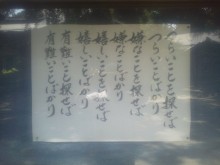 つらいことを探せば
つらいことばかり
嫌なことを探せば
嫌なことばかり
嬉しいことを探せば
嬉しいことばかり
有難いことを探せば
有難いことばかり